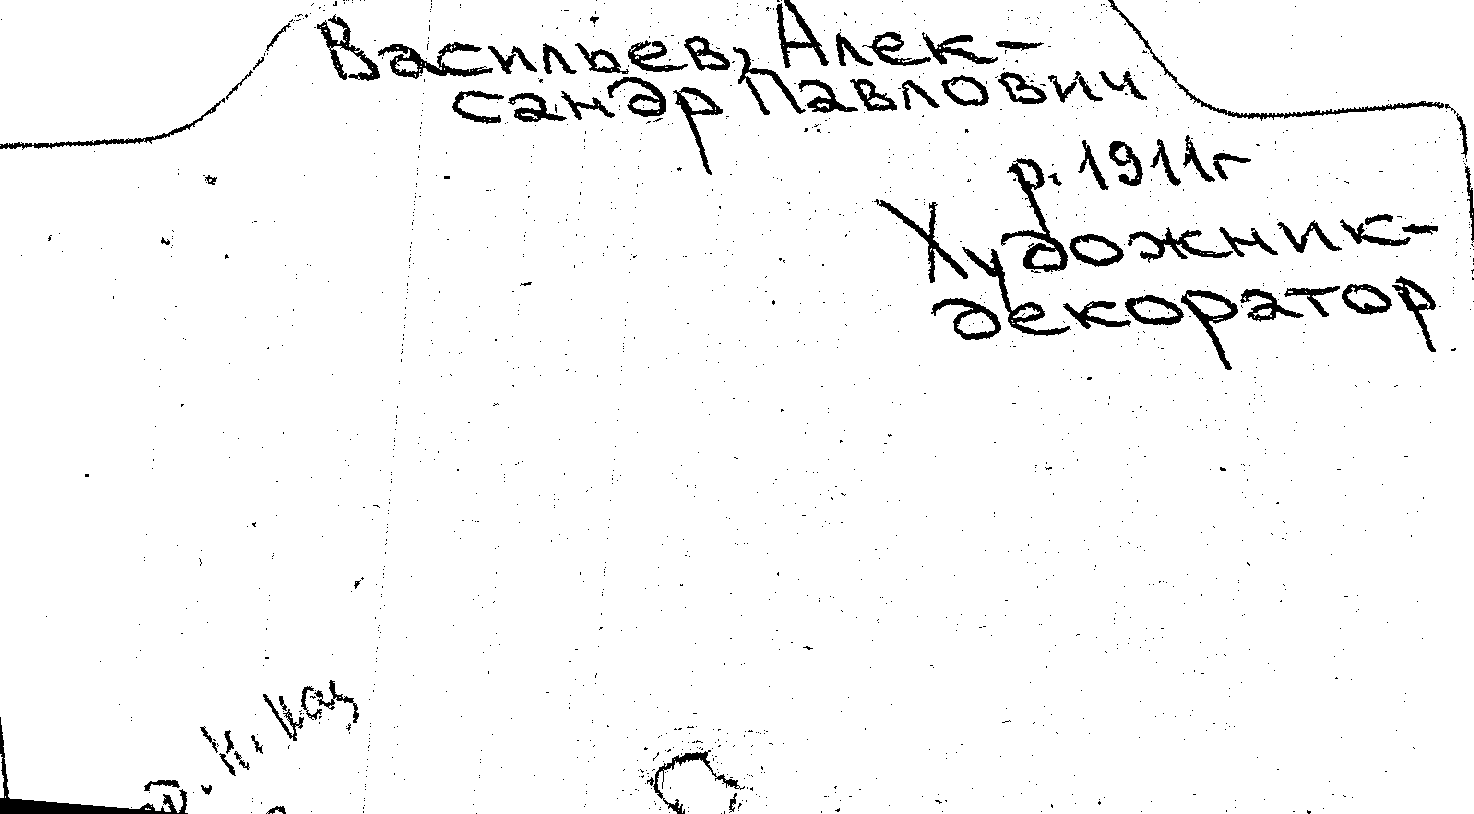 Васильев, Алек-
сандр Павлович
р. 1911г
Художник-
декоратор